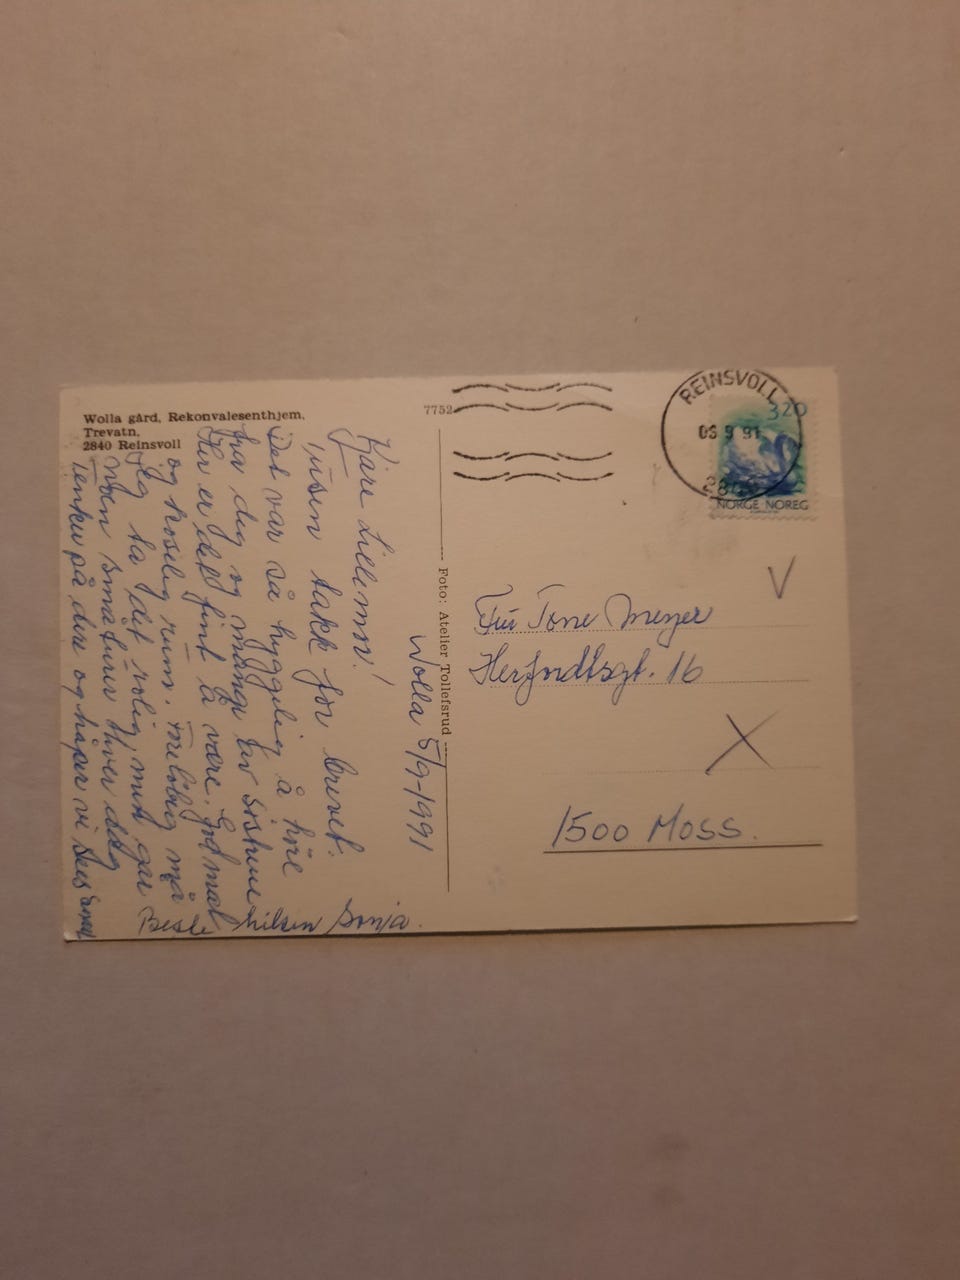 Wolla gård, Rekonvalesenthjem,
Trevatn,
2840 Reinsvoll
7752
Foto: Atelier Tollefsrud
REINSVOLL
06 9 91
2840
320
NORGE NOREG
Wolla 5/9-1991
Kjære Lillemor!
Tusen takk for brevet.
Det var så hyggelig å høre
fra deg og mange av søstrene
Her er det fint å være. God mat
og koselig rum. Foreløbig må
jeg ta det rolig, men går
noen småturer hver dag
Tenker på dere og håper vi sees snart
Beste hilsen Sonja.
V
Fru Tone Meyer
Herfordtsgt. 16
X
1500 Moss.